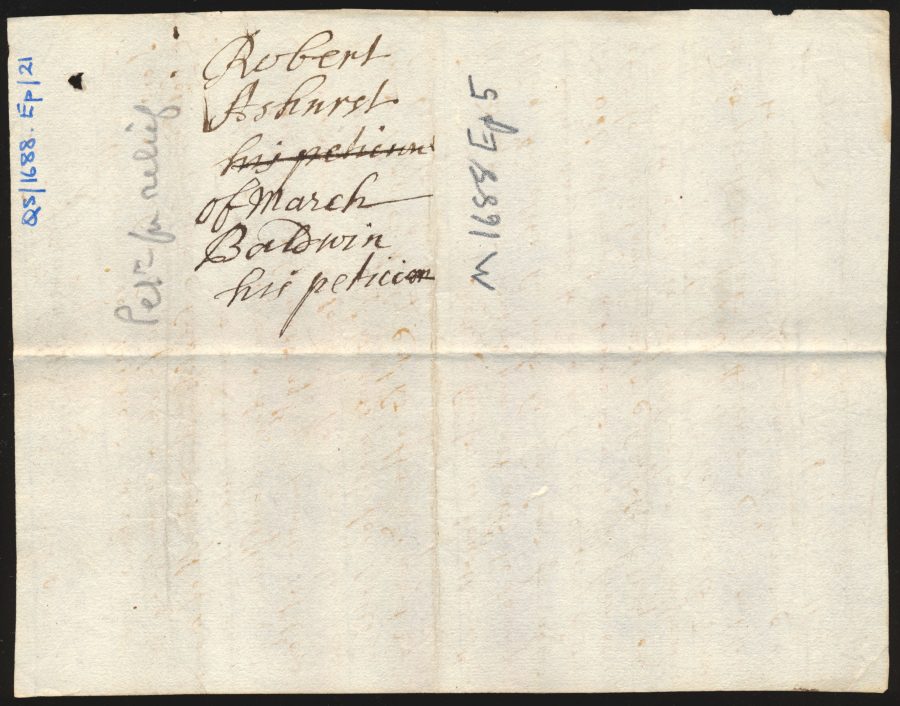 QS/1688. Ep/21
Petn for relief
Robert
Ashurst
his peticion
of March
Baldwin
his peticion
M 1688 Ep 5